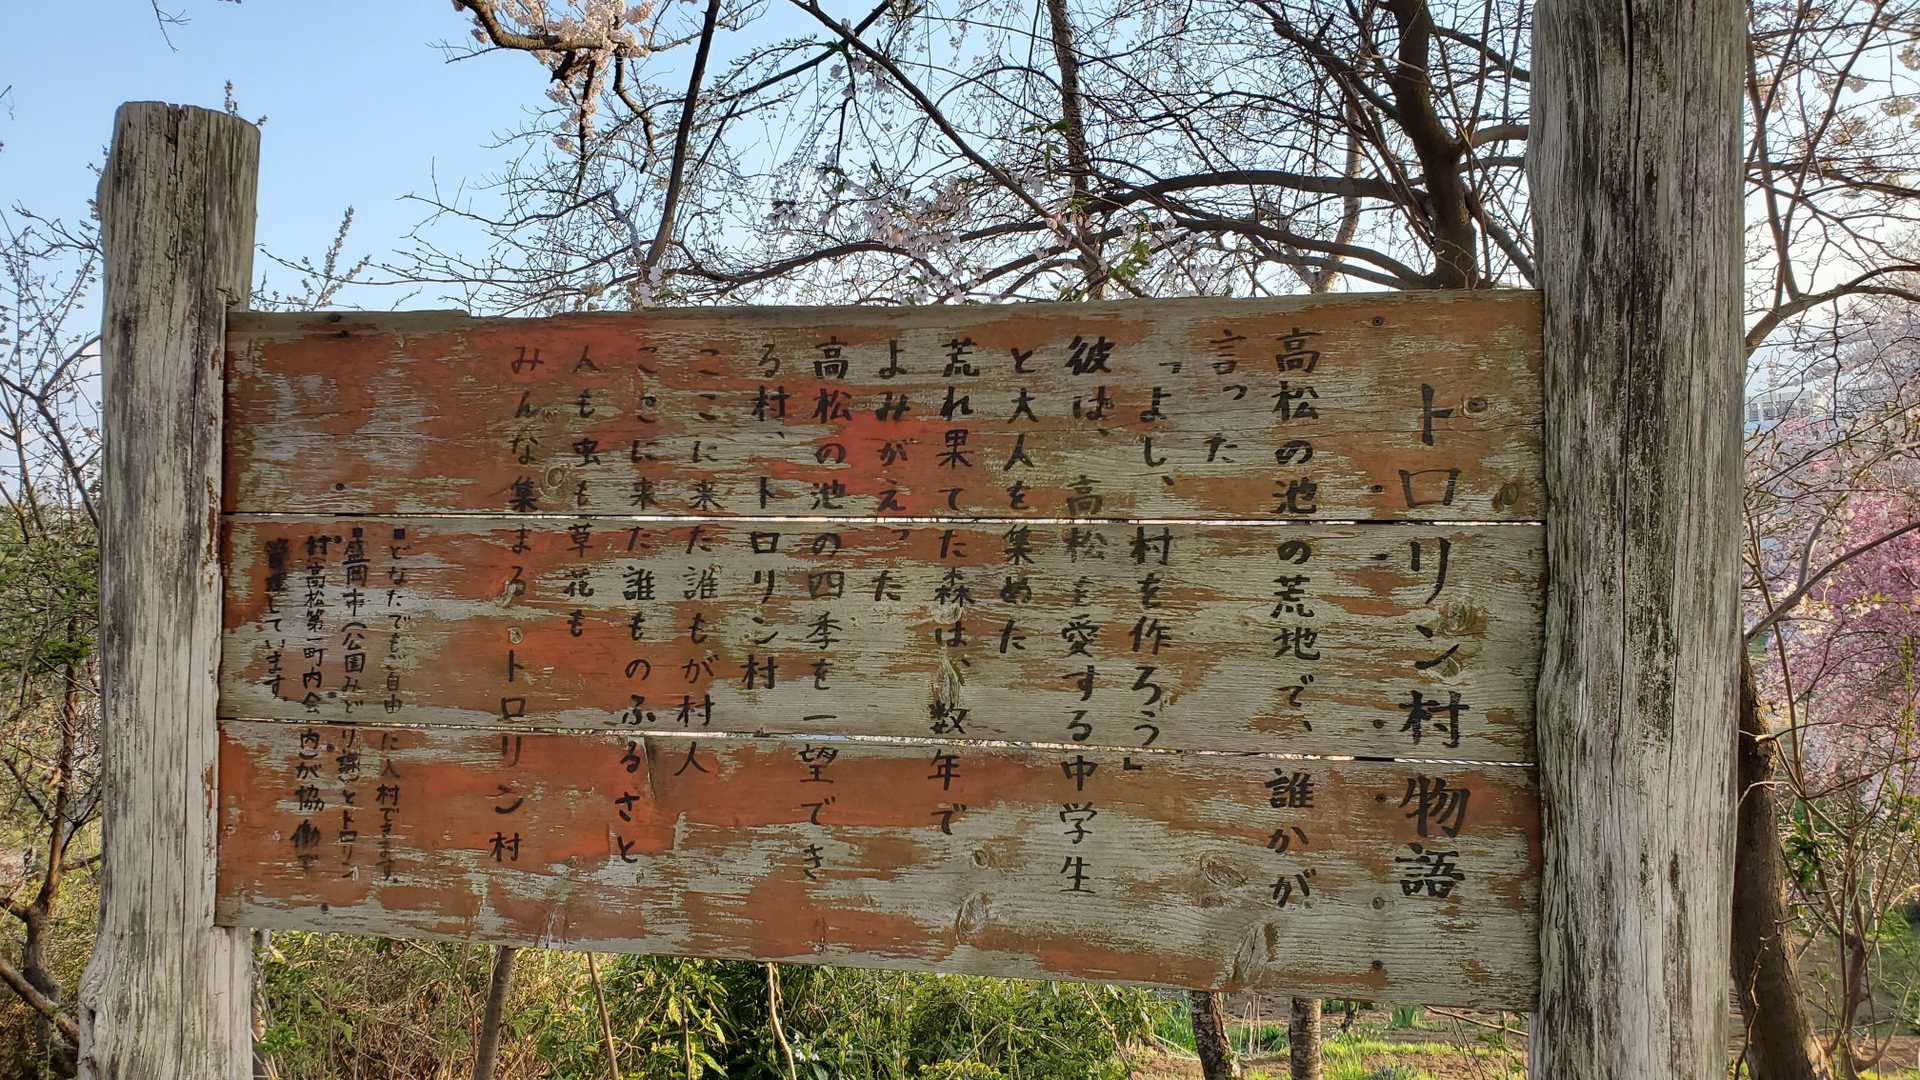 トロリン村物語
高松の池の荒地で、誰かが
言った
「よし、村を作ろう」
彼は、高松を愛する中学生
と大人を集めた
荒れ果てた森は、数年で
よみがえった
高松の池の四季を一望でき
る村、トロリン村
ここに来た誰もが村人
ここに来た誰ものふるさと
人も虫も草花も
みんな集まる トロリン村
■どなたでもご自由に入村できます。
■盛岡市(公園みどり課)とトロリン
村(高松第一町内会内)が協働で
管理しています。